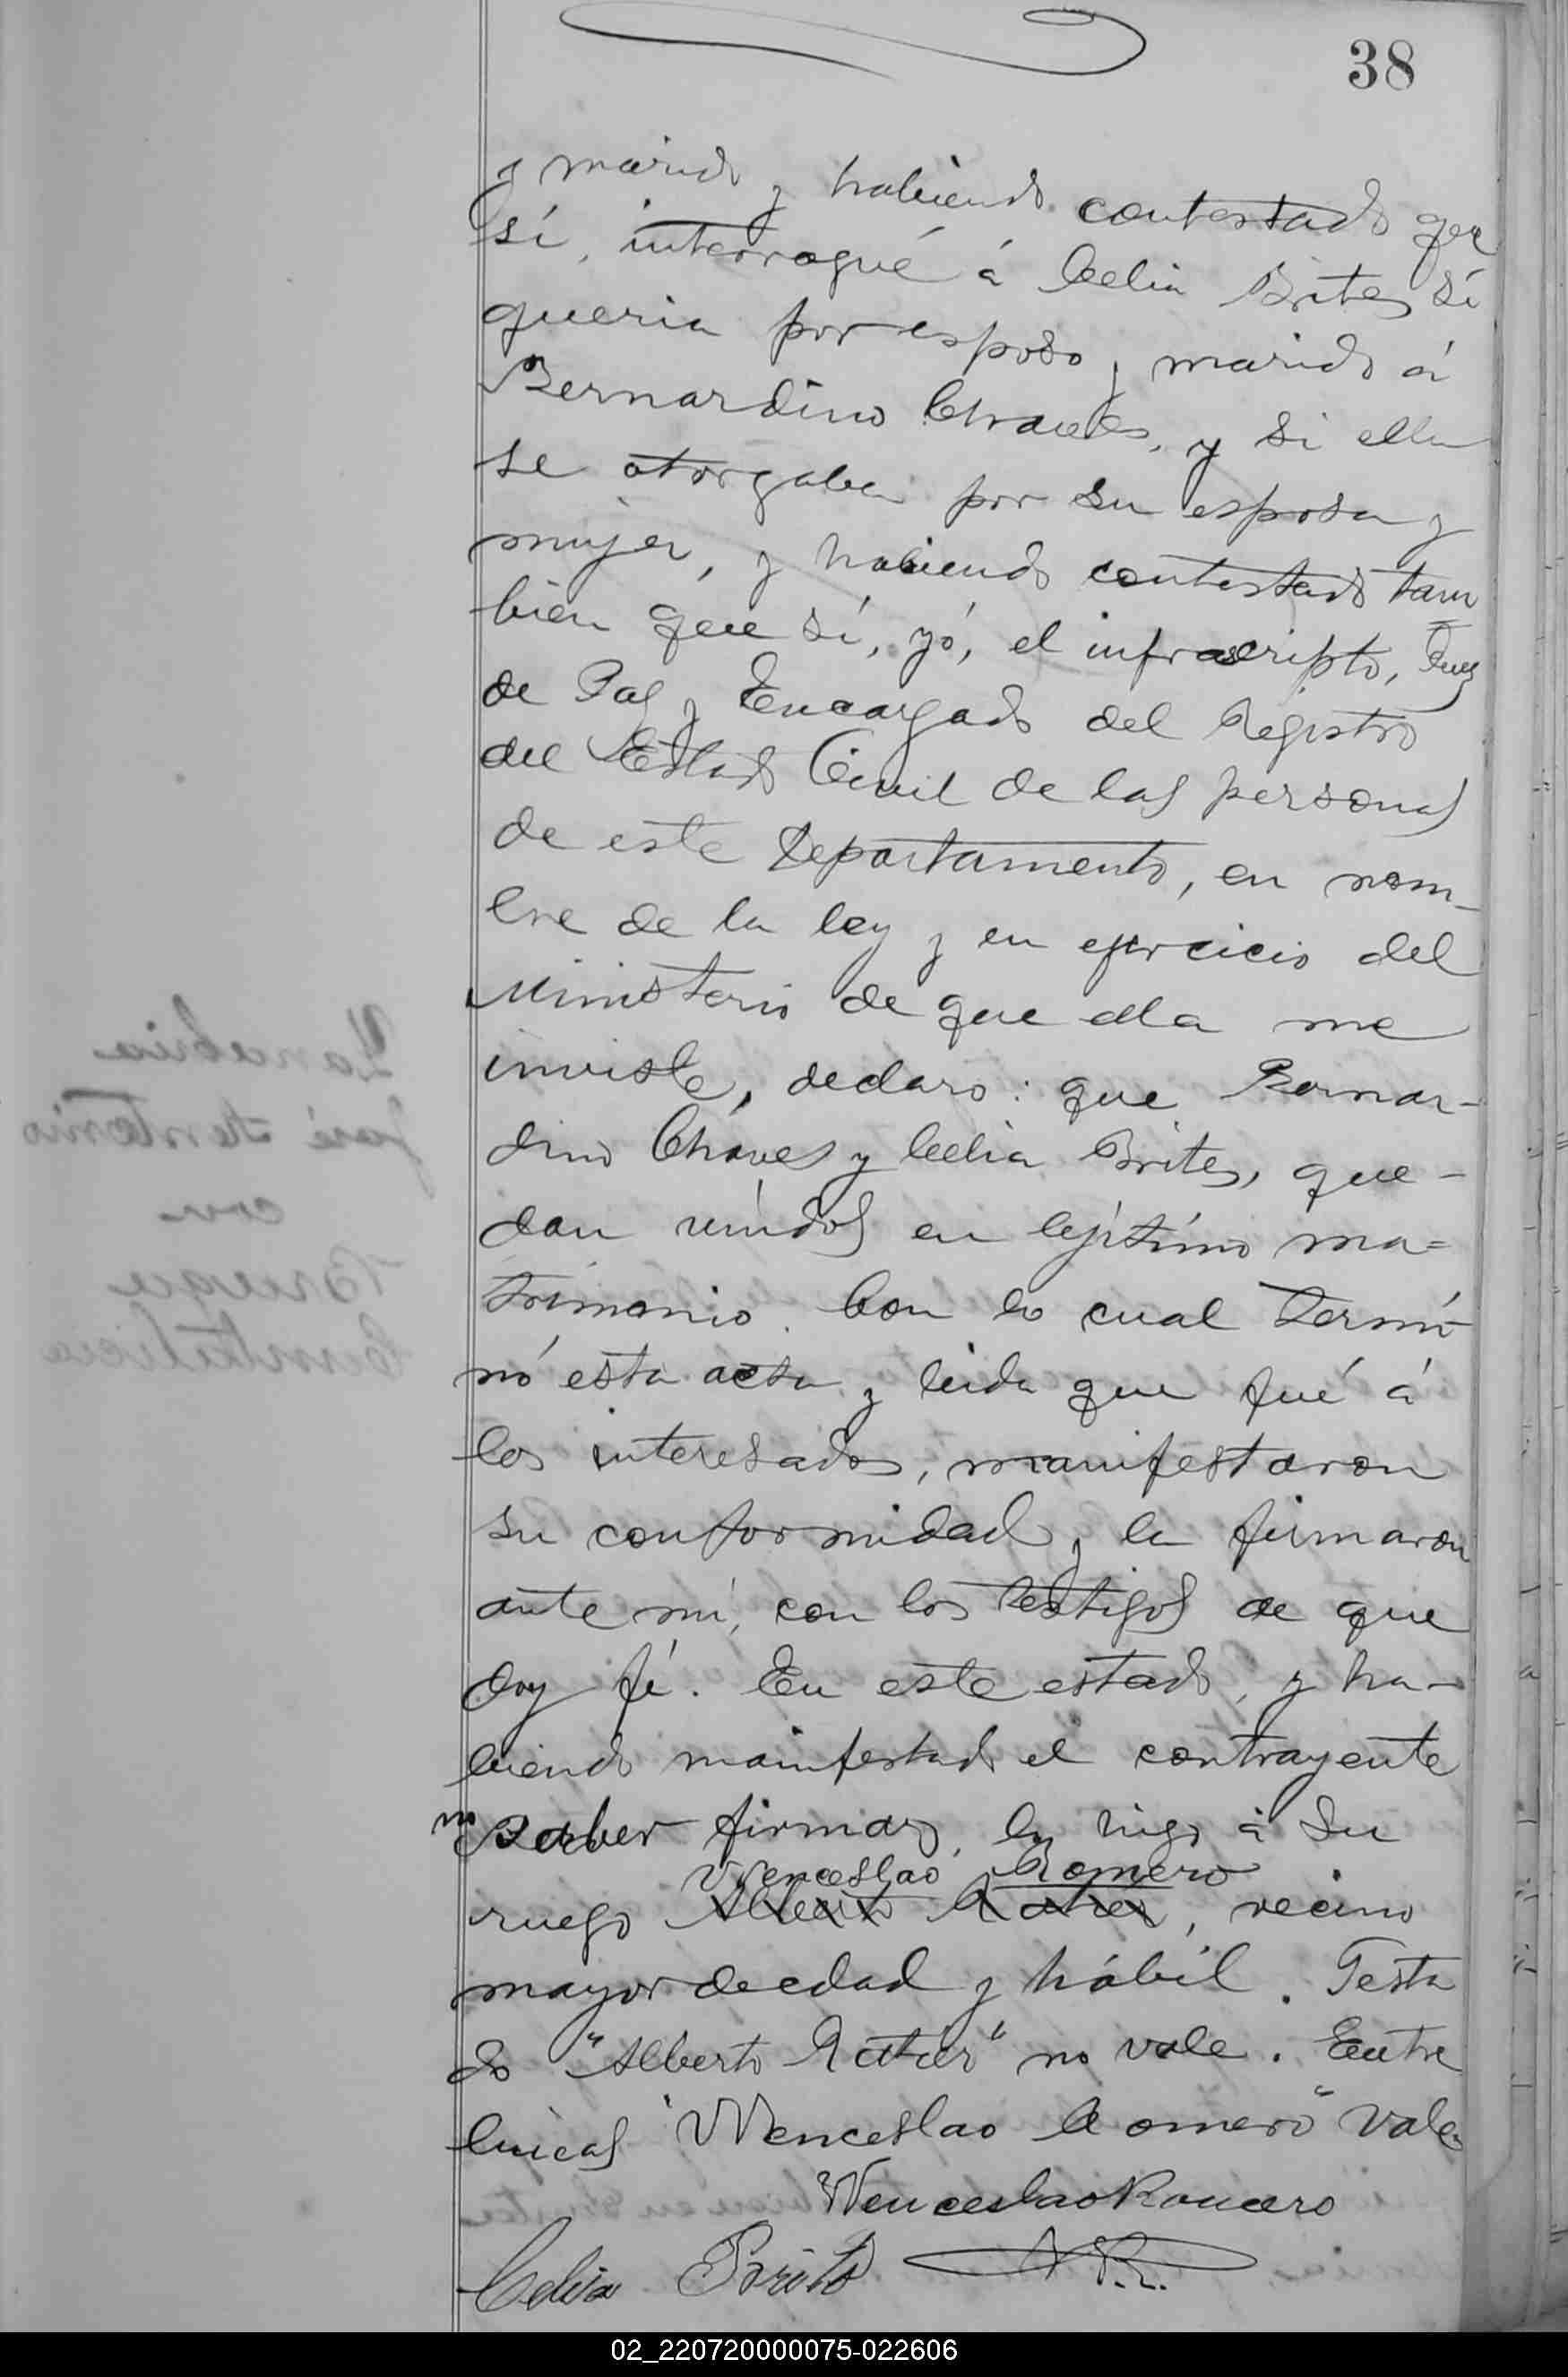 38
y marido y habiendo contestado que
sí, interrogué á Celia Brites si
queria por esposo y marido á
Bernardino Chaves, y si ella
se otorgaba por su esposa y
mujer, y habiendo contestado tam
bien que sí, yó, el infrascripto, Juez
de Paz y Encargado del Registro
del Estado Civil de las personas
de este Departamento, en nom-
bre de la ley y en ejercicio del
Ministerio de que ella me
inviste, declaro: que Bernar-
dino Chaves y Celia Brites, que-
dan unidos en lejítimo ma=
trimonio. Con lo cual termi
nó esta acta y leida que fué á
los interesados, manifestaron
su conformidad y la firmaron
ante mí, con los testigos de que
doy fé. En este estado, y ha-
biendo manifestado el contrayente
no saber firmar, lo hizo á su
Wenceslao Romero
ruego Alberto Ratier, vecino
mayor de edad y hábil. Testa
do "Alberto Ratier" no vale. Entre
lineas "Wenceslao Romero" vale
Wenceslao Romero
Celia Brites
02_220720000075-022606